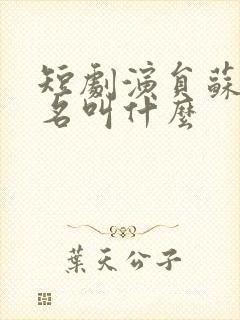 短劇演員蘇
名叫什麼
葉天公子